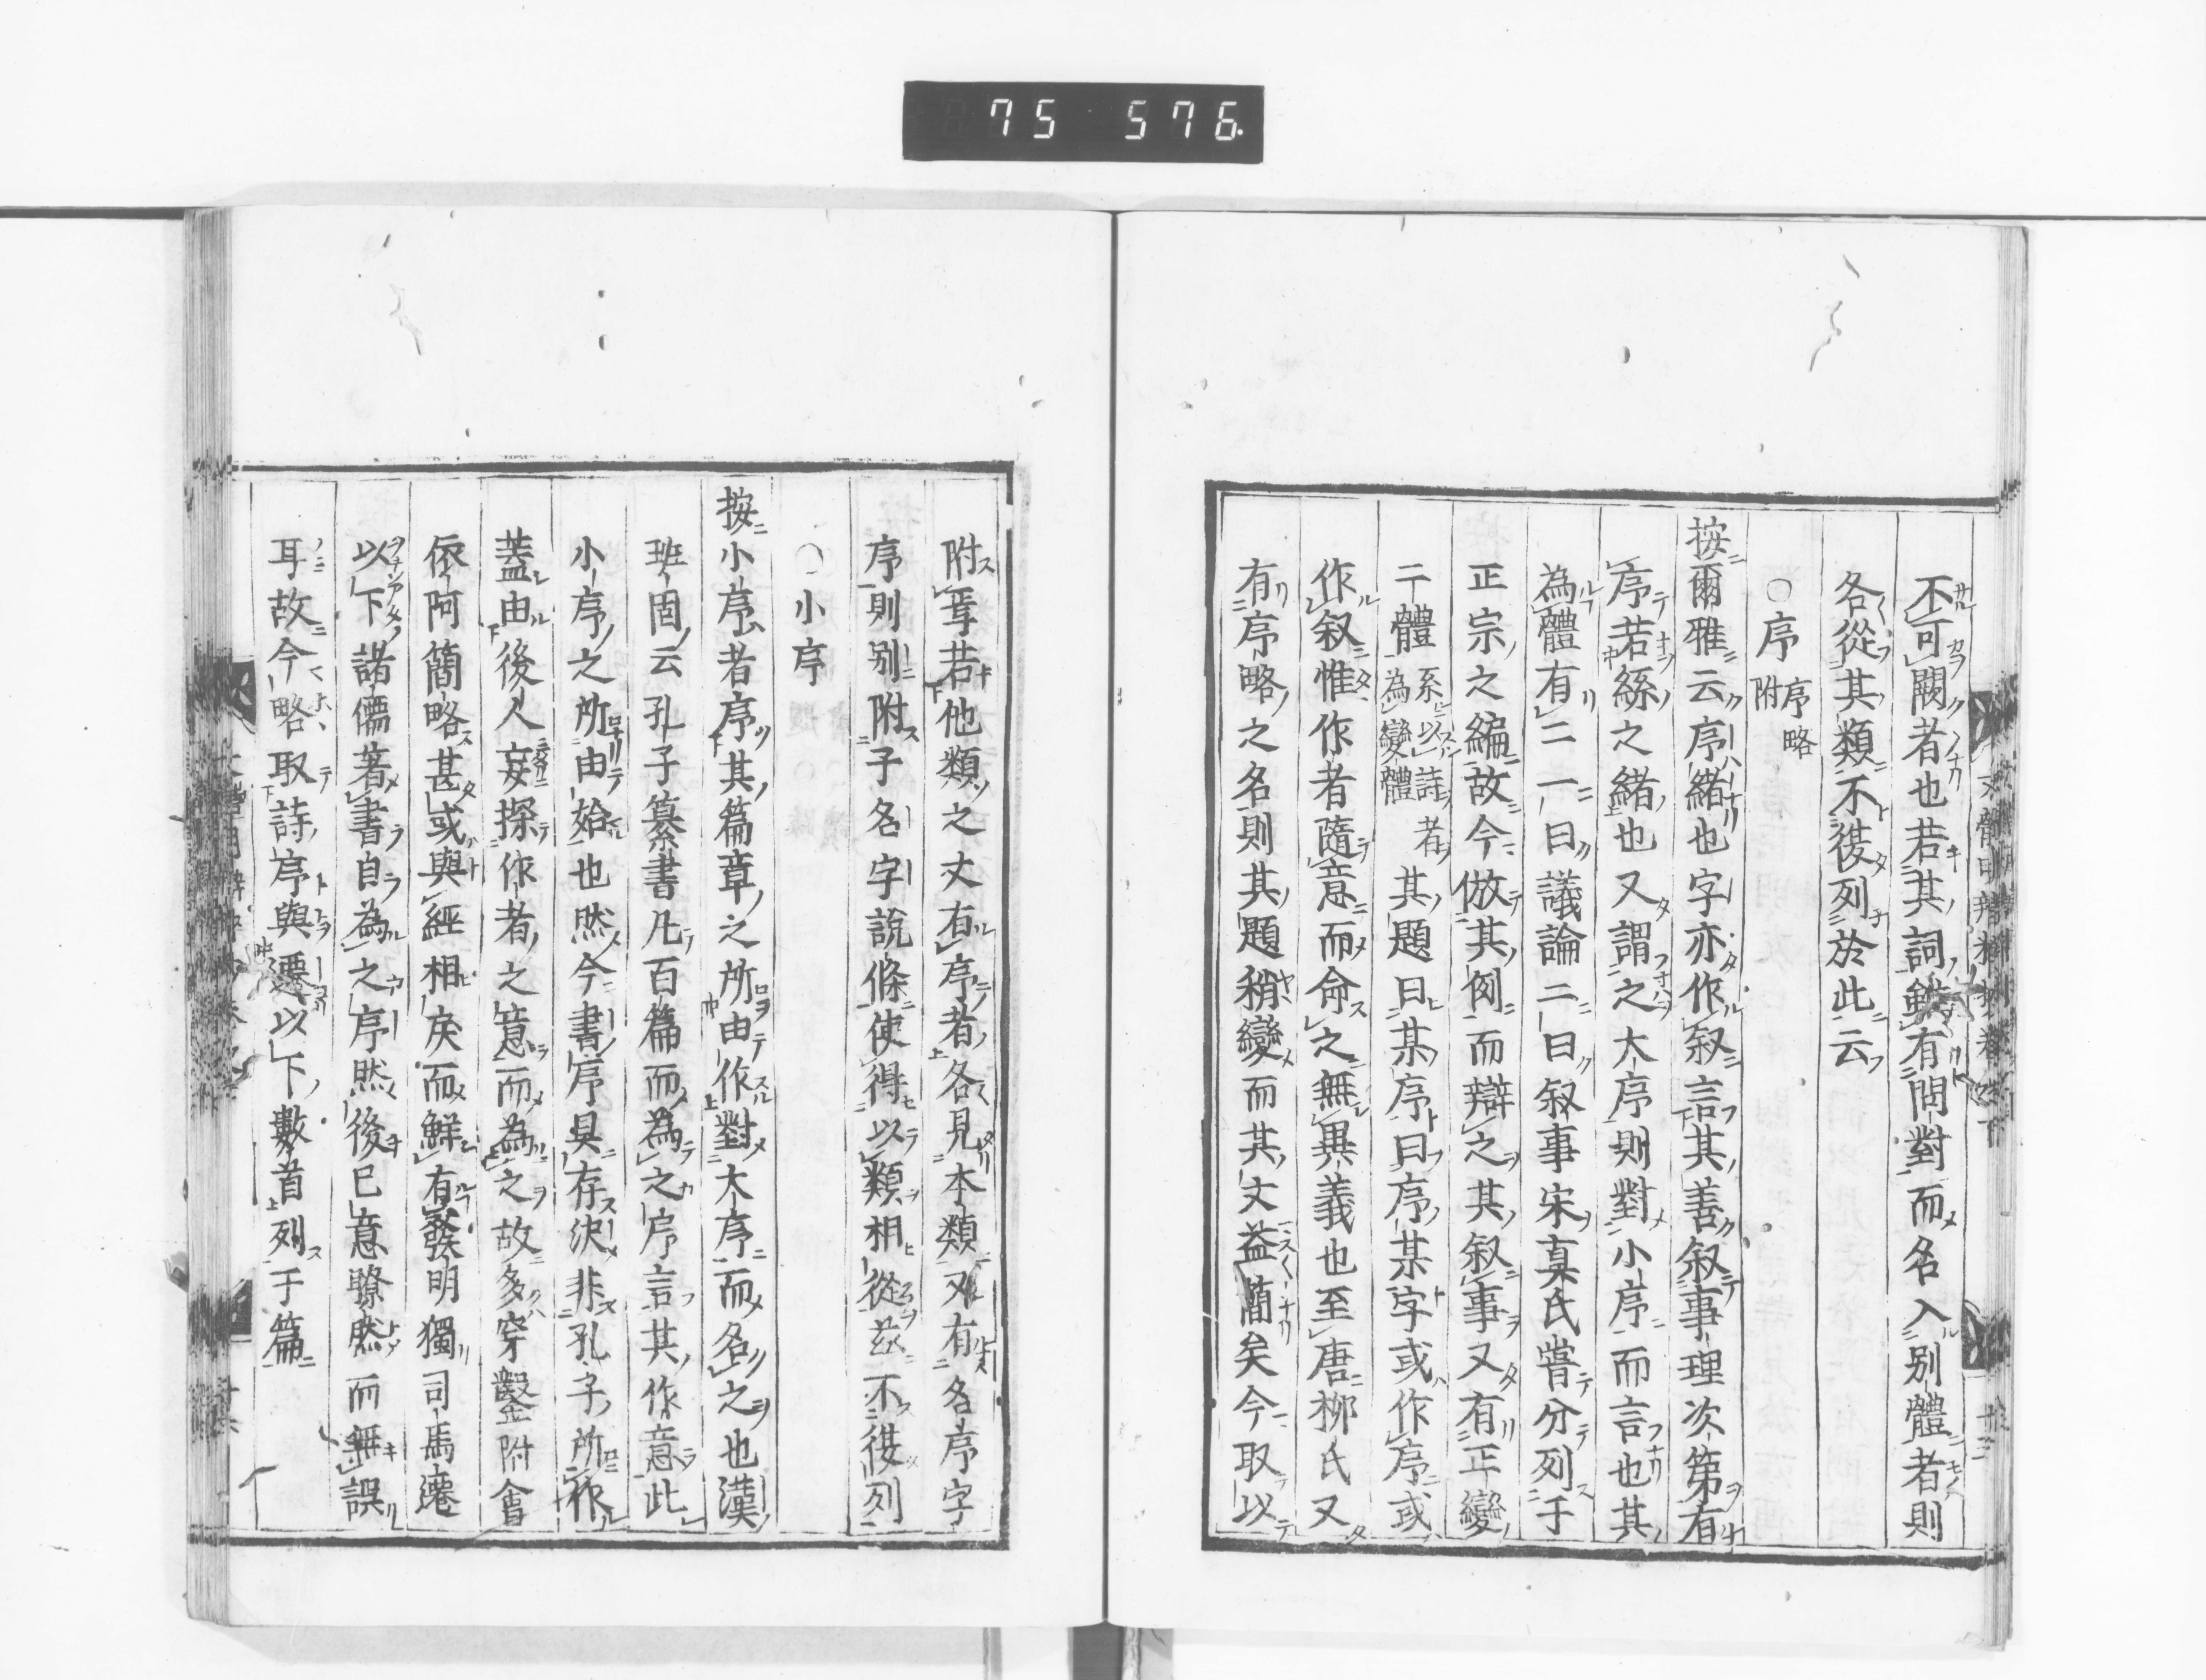 75 576
不可闕者也若其詞雖有問對而名入別體者則
各從其類不復列於此云
○序 序略附
按爾雅云序緒也字亦作叙言其善叙事理次第有
序若絲之緒也又謂之大序則對小序而言也其
為體有二一曰議論二曰叙事宋真氏嘗分列于
正宗之編故今倣其例而辯之其叙事又有正變
二體系以詩者為變體其題曰某序曰序某字或作序或
作叙惟作者隨意而命之無異義也至唐柳氏又
有序略之名則其題稍變而其文益簡矣今取以
附焉若他類之文有序者各見本類又有名序字
序則別附子名字說條使得以類相從茲不復列
○小序
按小序者序其篇章之所由作對大序而名之也漢
班固云孔子纂書凡百篇而為之序言其作意此
小序之所由始也然今書序具存決非孔子所作
蓋由後人妄探作者之意而為之故多穿鑿附會
依阿簡略甚或與經相戾而鮮有發明獨司馬遷
以下諸儒著書自為之序然後已意瞭然而無誤
耳故今略取詩序與遷以下數首列于篇